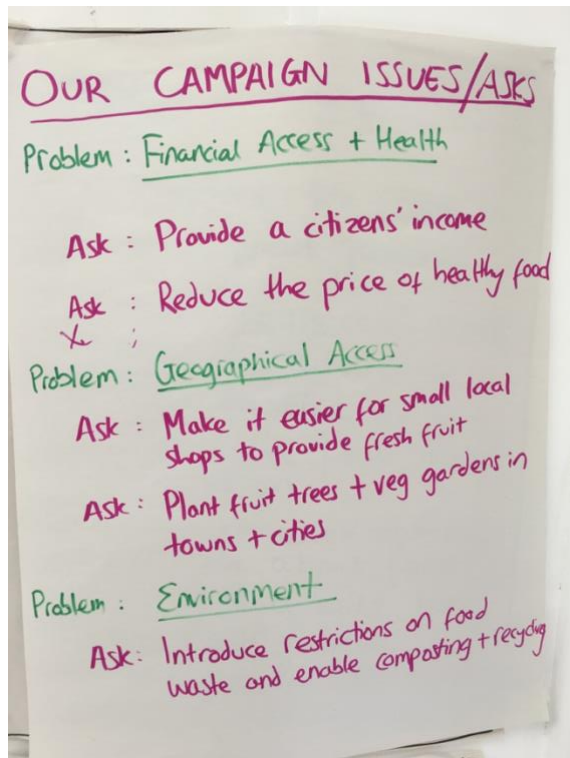 OUR CAMPAIGN ISSUES/ASKS
Problem : Financial Access + Health
Ask : Provide a citizens' income
Ask : Reduce the price of healthy food
Problem : Geographical Access
Ask : Make it easier for small local
shops to provide fresh fruit
Ask : Plant fruit trees + veg gardens in
towns + cities
Problem : Environment
Ask : Introduce restrictions on food
waste and enable composting + recycling